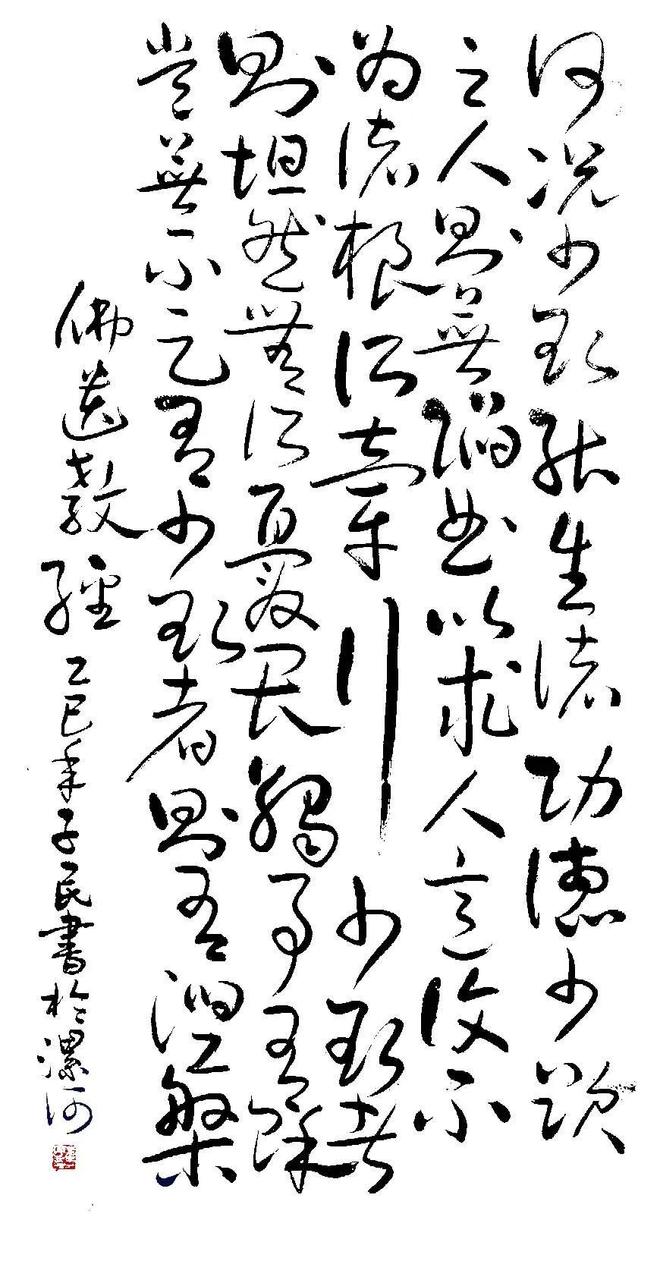 何況少欲能生諸功德少欲
之人則無諂曲以求人意復不
為諸根所牽行少欲者
則坦然無所憂畏觸事有餘
常無不足有少欲者則有涅槃
佛遺教經 乙巳年子民書於漯河